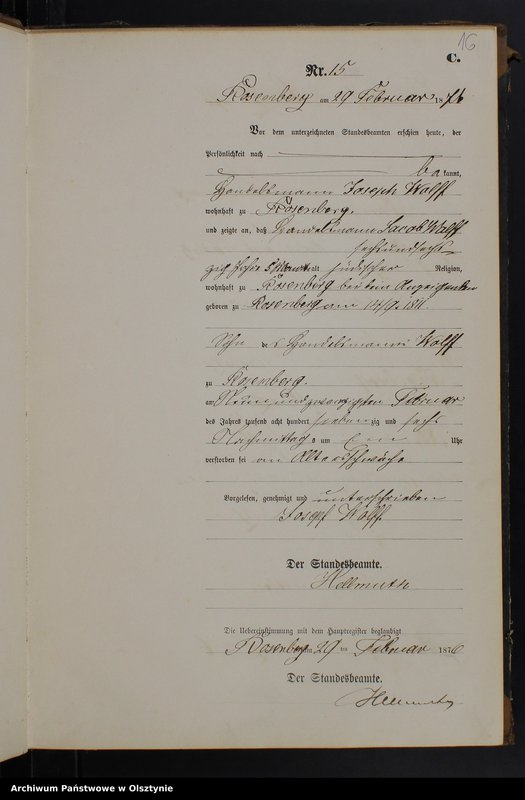 16
C.
Nr. 15
Rosenberg am 29 Februar 1876
Vor dem unterzeichneten Standesbeamten erschien heute, der
Persönlichkeit nach
bekannt,
Handelsmann Joseph Wolff
wohnhaft zu Rosenberg.
und zeigte an, daß Handelsmann Jacob Wolff
sechsundsech-
zig Jahre 5 Monat alt jüdischer Religion,
wohnhaft zu Rosenberg bei dem Anzeigenden
geboren zu Rosenberg am 14/9. 1811.
Sohn des Handelsmanns Wolff
zu Rosenberg.
am Neunundzwanzigsten Februar
des Jahres tausend acht hundert siebenzig und sechs
Nachmittags um Uhr
verstorben sei an Altersschwäche
Vorgelesen, genehmigt und unterschrieben
Josepf Wolff.
Der Standesbeamte.
Hellmuth
Die Uebereinstimmung mit dem Hauptregister beglaubigt
Rosenberg am 29 ten Februar 1876
Der Standesbeamte.
Hellmuth
Archiwum Państwowe w Olsztynie